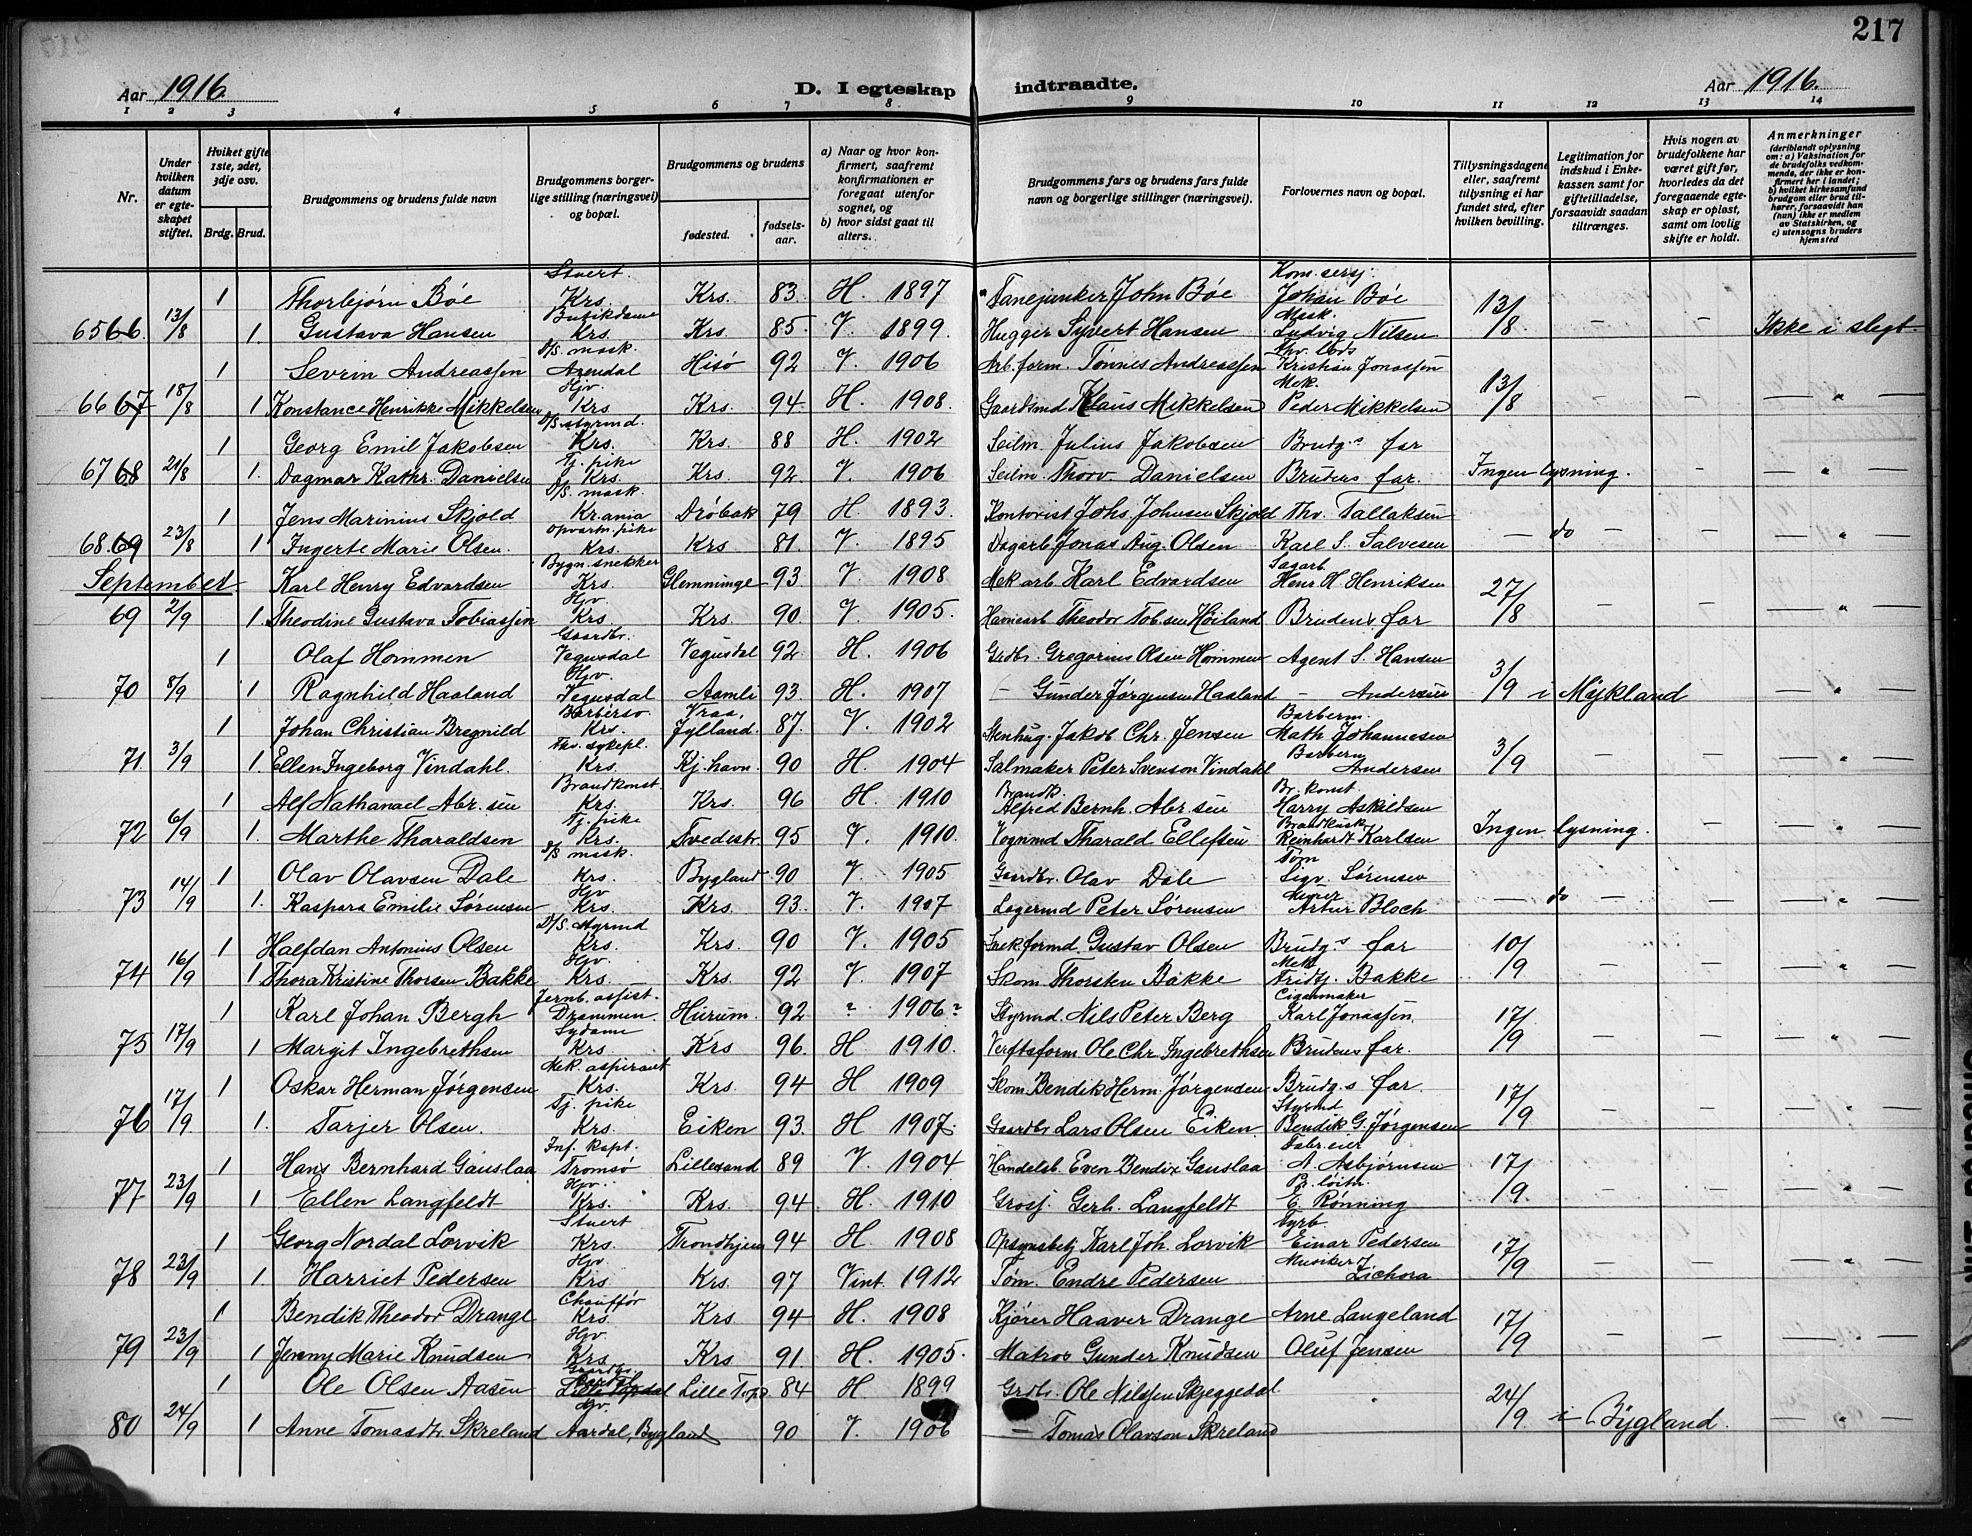 217
Aar 1916. D. I egteskap indtraadte. Aar 1916.
1 2 3 4 5 6 7 8 9 10 11 12 13 14
Nr.
Under hvilken datum er egteskapet stiftet.
Hviket gifte 1ste, 2det, 3dje osv.
Brdg. Brud.
Brudgommens og brudens fulde navn
Brudgommens borgerlige stilling (næringsvei) og bopæl.
Brudgommens og brudens
fødested. fødselsaar.
a) Naar og hvor konfirmert, saafremt konfirmationen er foregaat utenfor sognet, og
b) hvor sidst gaat til alters.
Brudgommens fars og brudens fars fulde navn og borgerlige stillinger (næringsvei).
Forlovernes navn og bopæl.
Tillysningsdagene eller, saafremt tillysning ei har fundet sted, efter hvilken bevilling.
Legitimation for indskud i Enkekassen samt for giftetilladelse, forsaavidt saadan tiltrænges.
Hvis nogen av brudefolkene har været gift før, hvorledes da det foregaaende egteskap er opløst, samt om lovlig skifte er holdt.
Anmerkninger (deriblandt oplysning om: a) Vaksination for de brudefolks vedkommende, der ikke er konfirmert her i landet; b) hvilket kirkesamfund brudgom eller brud tilhører, forsaavidt han (hun) ikke er medlem av Statskirken, og c) utensogns bruders hjemsted
Stuert. Kom. sersj.
1 Thorbjørn Bøe Krs. Krs. 83. H. 1897 Fanejunker John Bøe Johan Bøe 13/8
Butikdame Mask.
65 66. 13/8 1. Gustava Hansen Krs. Krs. 85. V. 1899. Hugger Syvert Hansen Ludvig Nilsen — — Ikke i slegt.
D/S. mask.
1 Sevrin Andreassen Arendal Hisø 92 V. 1906 Arb.form. Tønnes Andreassen Kristian Jonassen 13/8
Hjv. Mek.
66 67 18/8 1 Konstance Henrikke Mikkelsen Krs Krs. 94. H. 1908. Gaardsmd Klaus Mikkelsen Peder Mikkelsen — — — " —
D/S. styrmd.
1 Georg Emil Jakobsen Krs. Krs. 88 H. 1902 Seilm. Julius Jakobsen Brudg.s far
Tj. pike
67 68 21/8 1. Dagmar Kathr. Danielsen Krs. Krs. 92. V. 1906 Seilm. Thorv. Danielsen Brudens far. Ingen lysning. — — " —
D/S. mask.
1 Jens Marinius Skjold Kr.ania Drøbak 79 H. 1893. Kontorist Johs. Johnsen Skjold Thv. Tallaksen
Opvartn. pike
68. 69 23/8 1 Ingerte Marie Olsen. Krs. Krs 81. V. 1895 Dagarb. Jonas Aug. Olsen Karl S. Salvesen — do — — — " —
Bygn. snekker Sagarb.
September. Karl Henry Edvardsen Krs Glemminge 93 V. 1908 Mek arb. Karl Edvardsen Henr H. Henriksen 27/8
Hjv.
69 2/9 1. Theodine Gustava Tobiassen Krs Krs. 90. V. 1905. Havnearb Theodor Tob.sen Høiland Brudens far — — — " —
Gaardbr.
1 Olaf Hommen Vegusdal Vegusdal 92. H. 1906 Grdbr. Gregorius Olsen Hommen Agent S. Hansen
Hjv.
70 8/9 1 Ragnhild Haaland Vegusdal Aamli 93. H. 1907 — Gunder Jørgensen Haaland — Andersen 3/9 i Mykland — " —
Barberso. Vraa, Barberm.
1 Johan Christian Bregnild Krs. Jylland. 87. V. 1902 Stenhug. Jakob Chr. Jensen Math Johannesen
Fhv. sykepl. Barberm
71 3/9 1. Ellen Ingeborg Vindahl. Krs. Kj.havn. 90 H. 1904 Salmaker Peter Svenson Vindahl Andersen 3/9 — — — " —
Brandkonst. Brandk. Br. konst.
1 Alf Nathanael Abr.sen Krs. Krs. 96 H. 1910 Alfred Bernh. Abr.sen Harry Askildsen
Tj. pike Brandkusk
72 6/9 1. Marthe Tharaldsen Krs. Tvedestr. 95 V. 1910. Vognmd Tharald Ellefsen Reinhardt Karlsen Ingen lysning. — — " —
D/S mask. Tøm
1 Olav Olavsen Dale Krs. Bygland 90 V. 1905 Gaardbr. Olav Dale Sigv. Sørensen
Hjv Murer
73 14/9 1. Kaspara Emilie Sørensen Krs. Krs. 93. V. 1907 Lagermd Peter Sørensen Artur Bloch — do — — — " —
D/S. styrmd
1 Halfdan Antonius Olsen Krs. Krs. 90 V. 1905 Snek formd. Gustav Olsen Brudg.s far 10/9
Hjv. Mek
74 16/9 1 Thora Kristine Thorsen Bakke Krs Krs. 92 V. 1907 Skom Thorsten Bakke Fridtj. Bakke — — — " —
Jernb. assist. Cigarmaker
1 Karl Johan Bergh Drammen. Hurum. 92 ? 1906? Styrmd. Nils Peter Berg Karl Jonassen. 17/9
Sydame
75 17/9 1 Margit Ingebrethsen Krs Krs 96. H 1910. Verftsform Ole Chr. Ingebrethsen Brudens far. — — — " —
Mek. aspirant
1 Oskar Herman Jørgensen Krs. Krs. 94 H 1909 Skom. Bendik Herm. Jørgensen Brudg.s far 17/9
Tj. pike Styrmd
76 17/9 1. Tarjer Olsen. Krs. Eiken 93. H 1907. Gaardbr Lars Olsen Eiken. Bendik G. Jørgensen — — — " —
Inf. kapt. Fabr.eier
1 Hans Bernhard Gauslaa Tromsø Lillesand 89 V. 1904 Handelsb. Even Bendix Gauslaa A. Asbjørnsen 17/9
Hjv. Pr. løitn.
77 23/9 1 Ellen Langfeldt Krs. Krs. 94 H. 1910 Grosj. Gerh. Langfeldt E. Rønning — — — " —
Stuert Fyrb
1 Georg Nordal Lorvik Krs. Trondhjem 94 H. 1908 Opsynsbetj Karl Joh. Lorvik Einar Pedersen 17/9
Hjv Musiker
78 23/9 1 Harriet Pedersen Krs Krs. 97 Vint. 1912 Tøm. Endre Pedersen J. Zichora — — — " —
Chauffør
1 Bendik Theodor Drange Krs. Krs 94 H. 1908 Kjører Haaver Drange Arne Langeland 17/9
Hjv.
79 23/9 1 Jenny Marie Knudsen Krs Krs. 91. H. 1905. Matros Gunder Knudsen Oluf Jensen — — — " —
1 Ole Olsen Aasen Lille Topdal Lille Top. 84 H 1899 Grdbr. Ole Nilssen Skjeggedal
Hjv.
80 24/9 1 Anne Tomasdtr. Skreland Aardal, Bygland 90 V. 1906 — Tomas Olavson Skreland 24/9 i Bygland. — " —